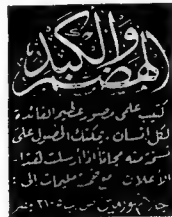 الهضم والكبد
كتيب علمى مصور عظيم الفائدة
لكل إنسان. يمكنك الحصول على
نسخة منه مجانا إذا أرسلت هذا
الاعلان مع خمسة مليمات إلى:
ص. ب ٢١٠٥ مصر